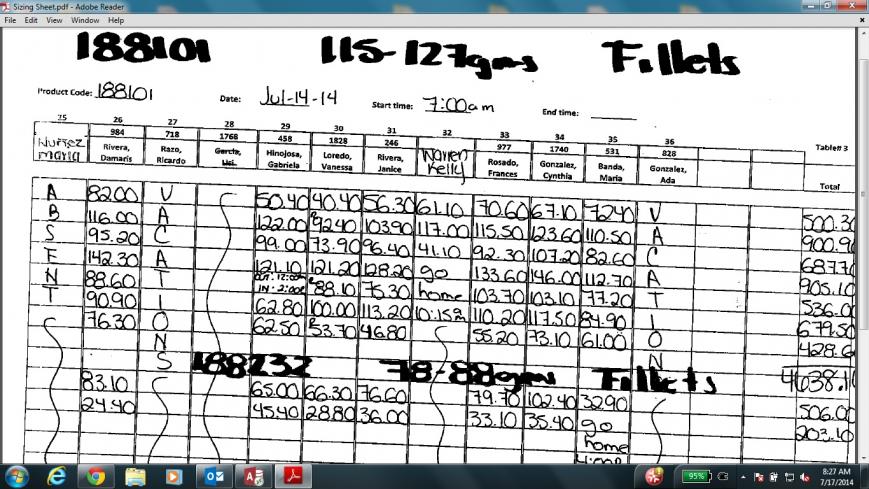 Sizing Sheet.pdf - Adobe Reader
File Edit View Window Help
188101 115-127gms Fillets
Product Code: 188101 Date: Jul-14-14 Start time: 7:00am End time:
25 26 27 28 29 30 31 32 33 34 35 36 Table# 3
Nuñez Maria 984 Rivera, Damaris 718 Razo, Ricardo 1768 Garcia, 458 Hinojosa, Gabriela 1828 Loredo, Vanessa 246 Rivera, Janice Warren Kelly 977 Rosado, Frances 1740 Gonzalez, Cynthia 531 Banda, Maria 828 Gonzalez, Ada Total
A 82.00 V 50.40 40.40 56.30 61.10 70.60 67.10 72.40 V 500.30
B 116.00 A 122.00 92.40 103.90 117.00 115.50 123.60 110.50 A 900.90
S 95.20 C 99.00 73.90 96.40 41.10 92.30 107.20 82.60 C 687.70
E 142.30 A 121.10 121.20 128.20 go 133.60 146.00 112.70 A 905.10
N 88.60 T OUT: 12:00 IN: 2:00 88.10 75.30 home 103.70 103.10 77.20 T 536.00
T 90.90 I 62.80 100.00 113.20 10:15 110.20 117.50 84.90 I 679.50
76.30 O 62.50 53.70 46.80 55.20 73.10 61.00 O 428.60
N N
S 188232 78-88gms Fillets 4638.10
83.10 65.00 66.30 76.60 79.70 102.40 32.90 506.00
24.40 45.40 28.80 36.00 33.10 35.40 go 203.10
home
95%
8:27 AM
7/17/2014